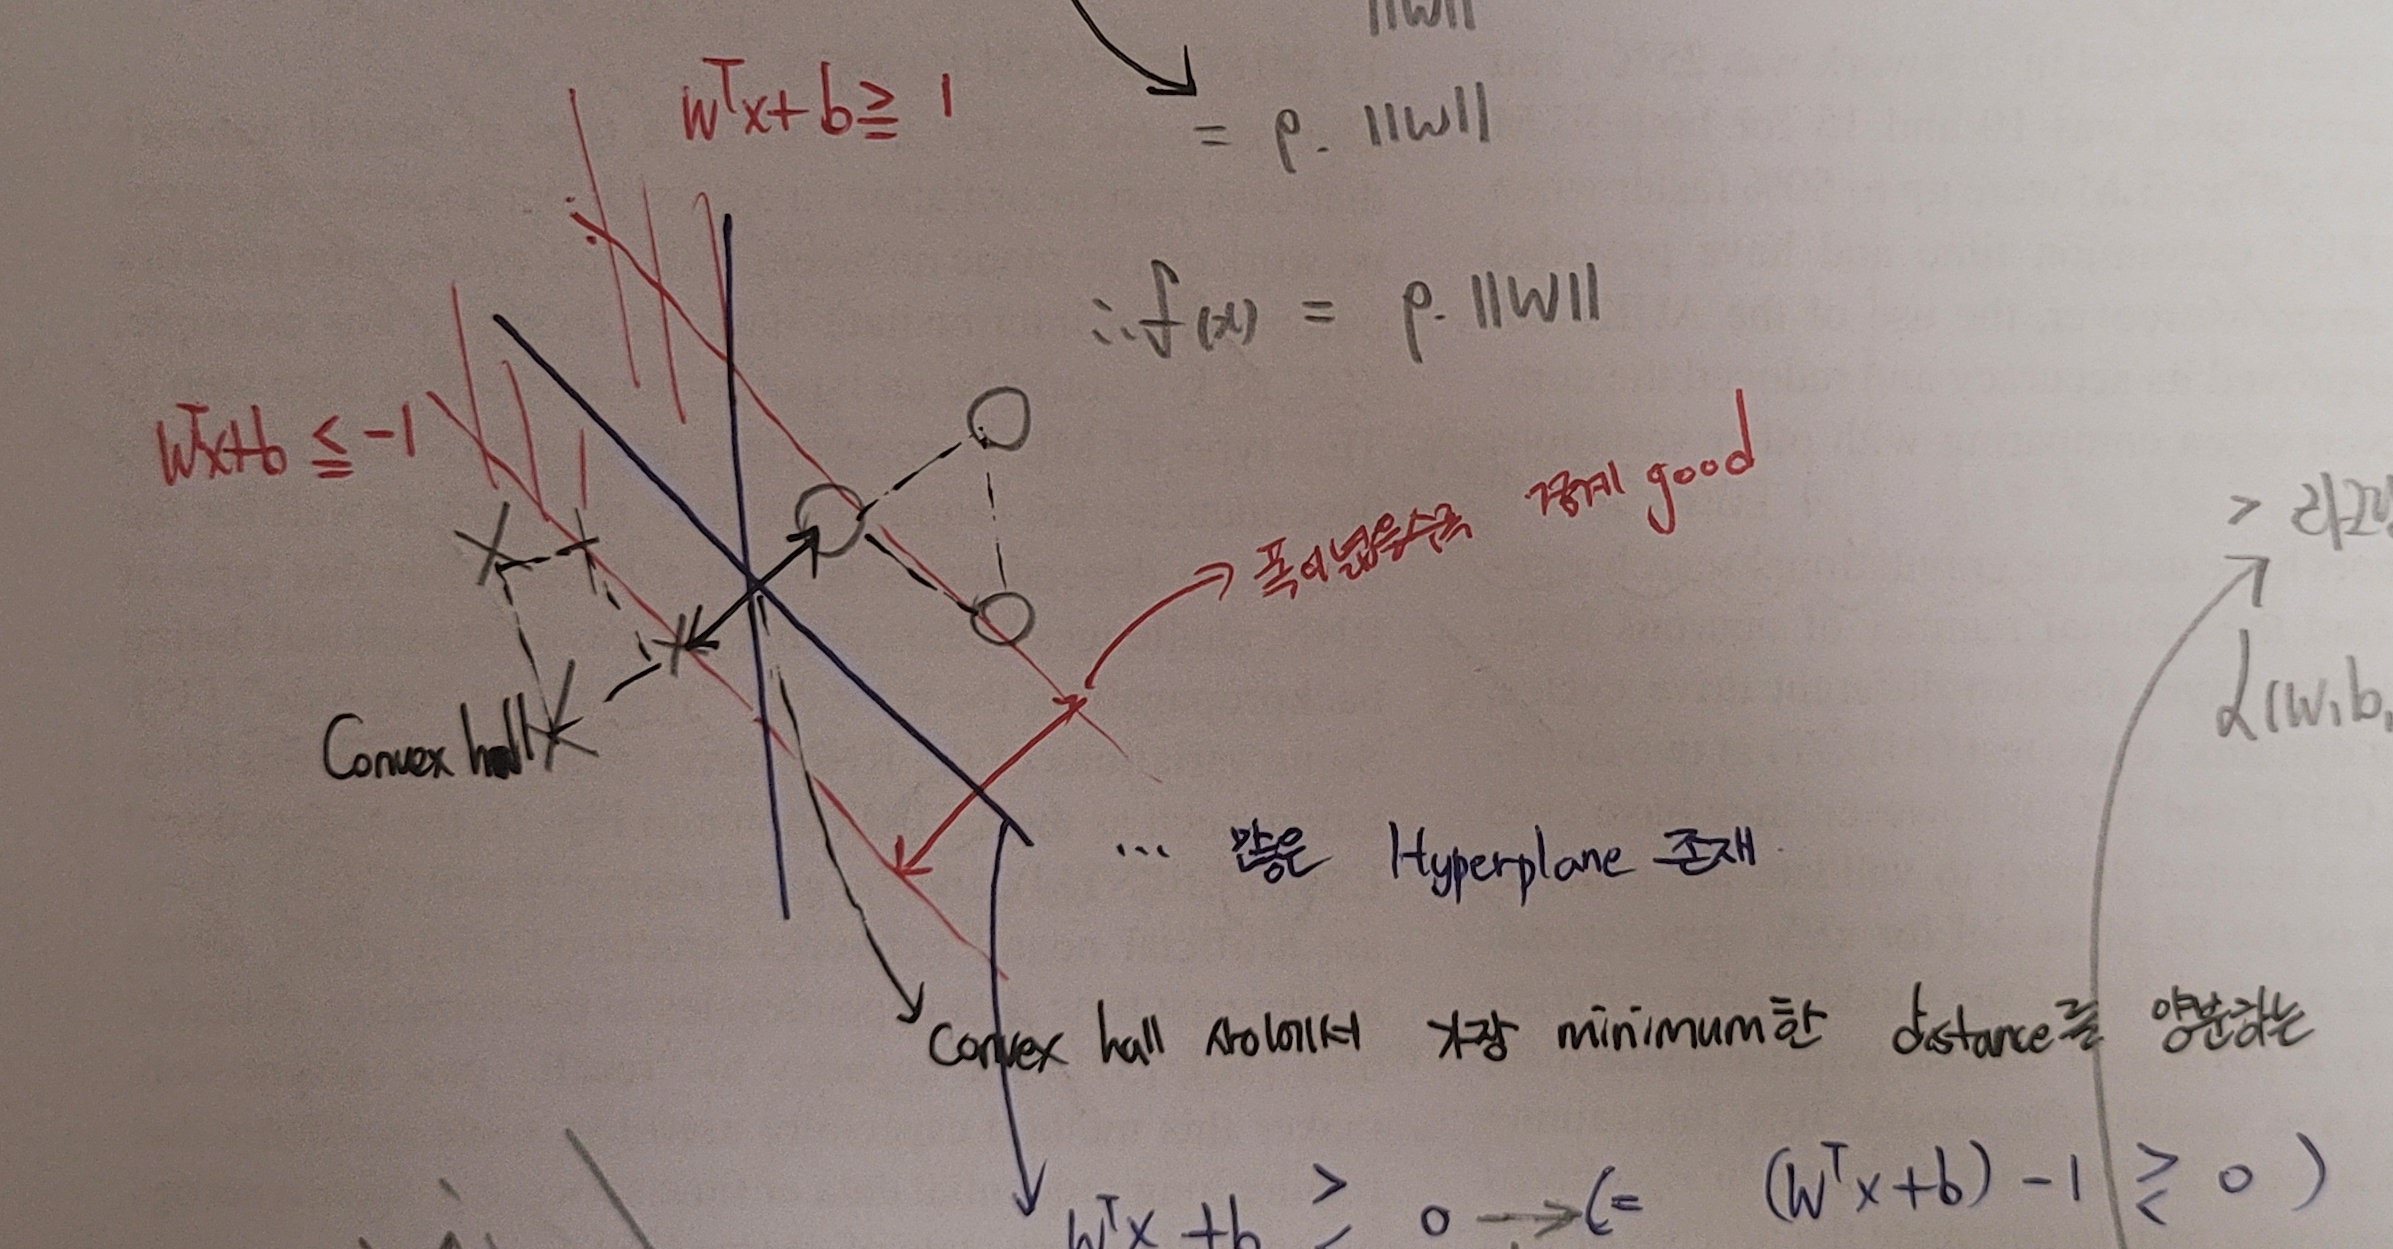 ||w||
wᵀx+b ≧ 1
= ρ. ||w||
∴ f(x) = ρ. ||w||
wᵀx+b ≦ -1
폭이 넓을수록 경계 good
Convex hall
> 라그랑
L(w,b,
... 많은 Hyperplane 존재
Convex hall 사이에서 가장 minimum한 distance를 양분하는
wᵀx +b ≷ 0 → (= (wᵀx+b) -1 ≷ 0 )